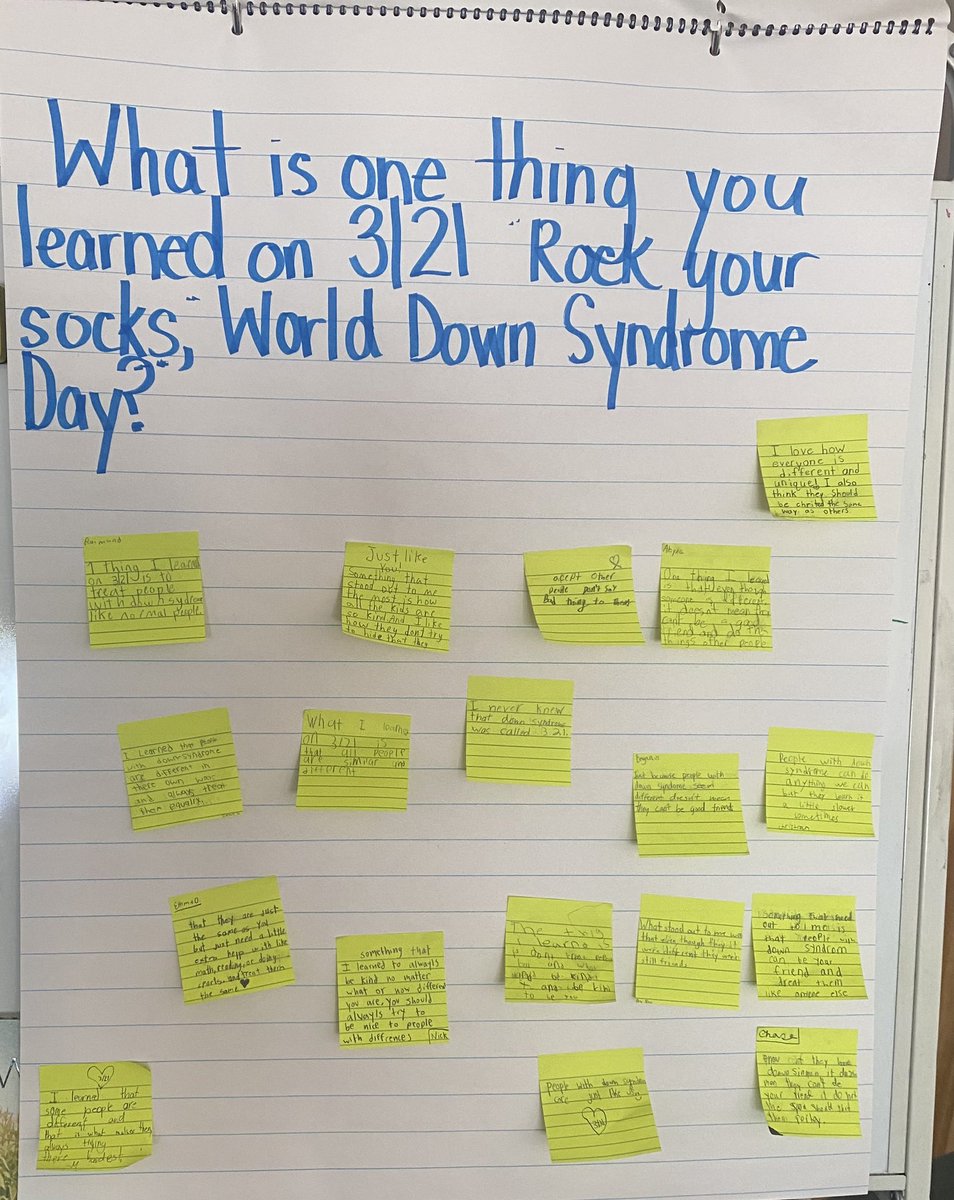 What is one thing you
learned on 3/21 "Rock your
socks," World Down Syndrome
Day?
I love how
everyone is
different and
unique! I also
think they should
be chrited the same
way as others.
1 thing I learned
on 3/21 is to
treat people
with down syndrom
like normal people.
Just like
you!
Something that
stood out to me
the most is how
all the kids are
so kind. And I like
how they don't try
to hide that they
acept other
people don't say
Bad thing to them
One thing I learned
is that even though
someone is different
it doesn't mean they
cant be a good
friend and do the
things other people
I learned that people
with down-syndrome
are different in
there own way
and always treat
them equally.
What I learned
on 3/21 is
that all people
are similar and
different
I never knew
that down syndrome
was called 3 21.
Just because people with
down syndrome seem
different doesn't mean
they cant be good friends
People with down
syndrome can do
anything we can
but they learn it
a little slower
sometimes
Emma D.
that they are just
the same as you
but just need a little
extra help with like
math, reading, or doing
sports. and treat them
the same
something that
I learned to always
be kind no matter
what or how different
you are, you should
always try to
be nice to people
with diffrences Nick
The thing
I learnd is
What stood out to me was
that even though they
were different they were
still friends
something that stood
out to me is
that people with
down syndrom
can be your
friend and
treat them
like anyone else
3/21
I learned that
some people are
different and
that is what makes them
always trying
there hardest!
People with down syndrome
are just like us
3/21
Chase
they have
it
mean they can't be
your friend